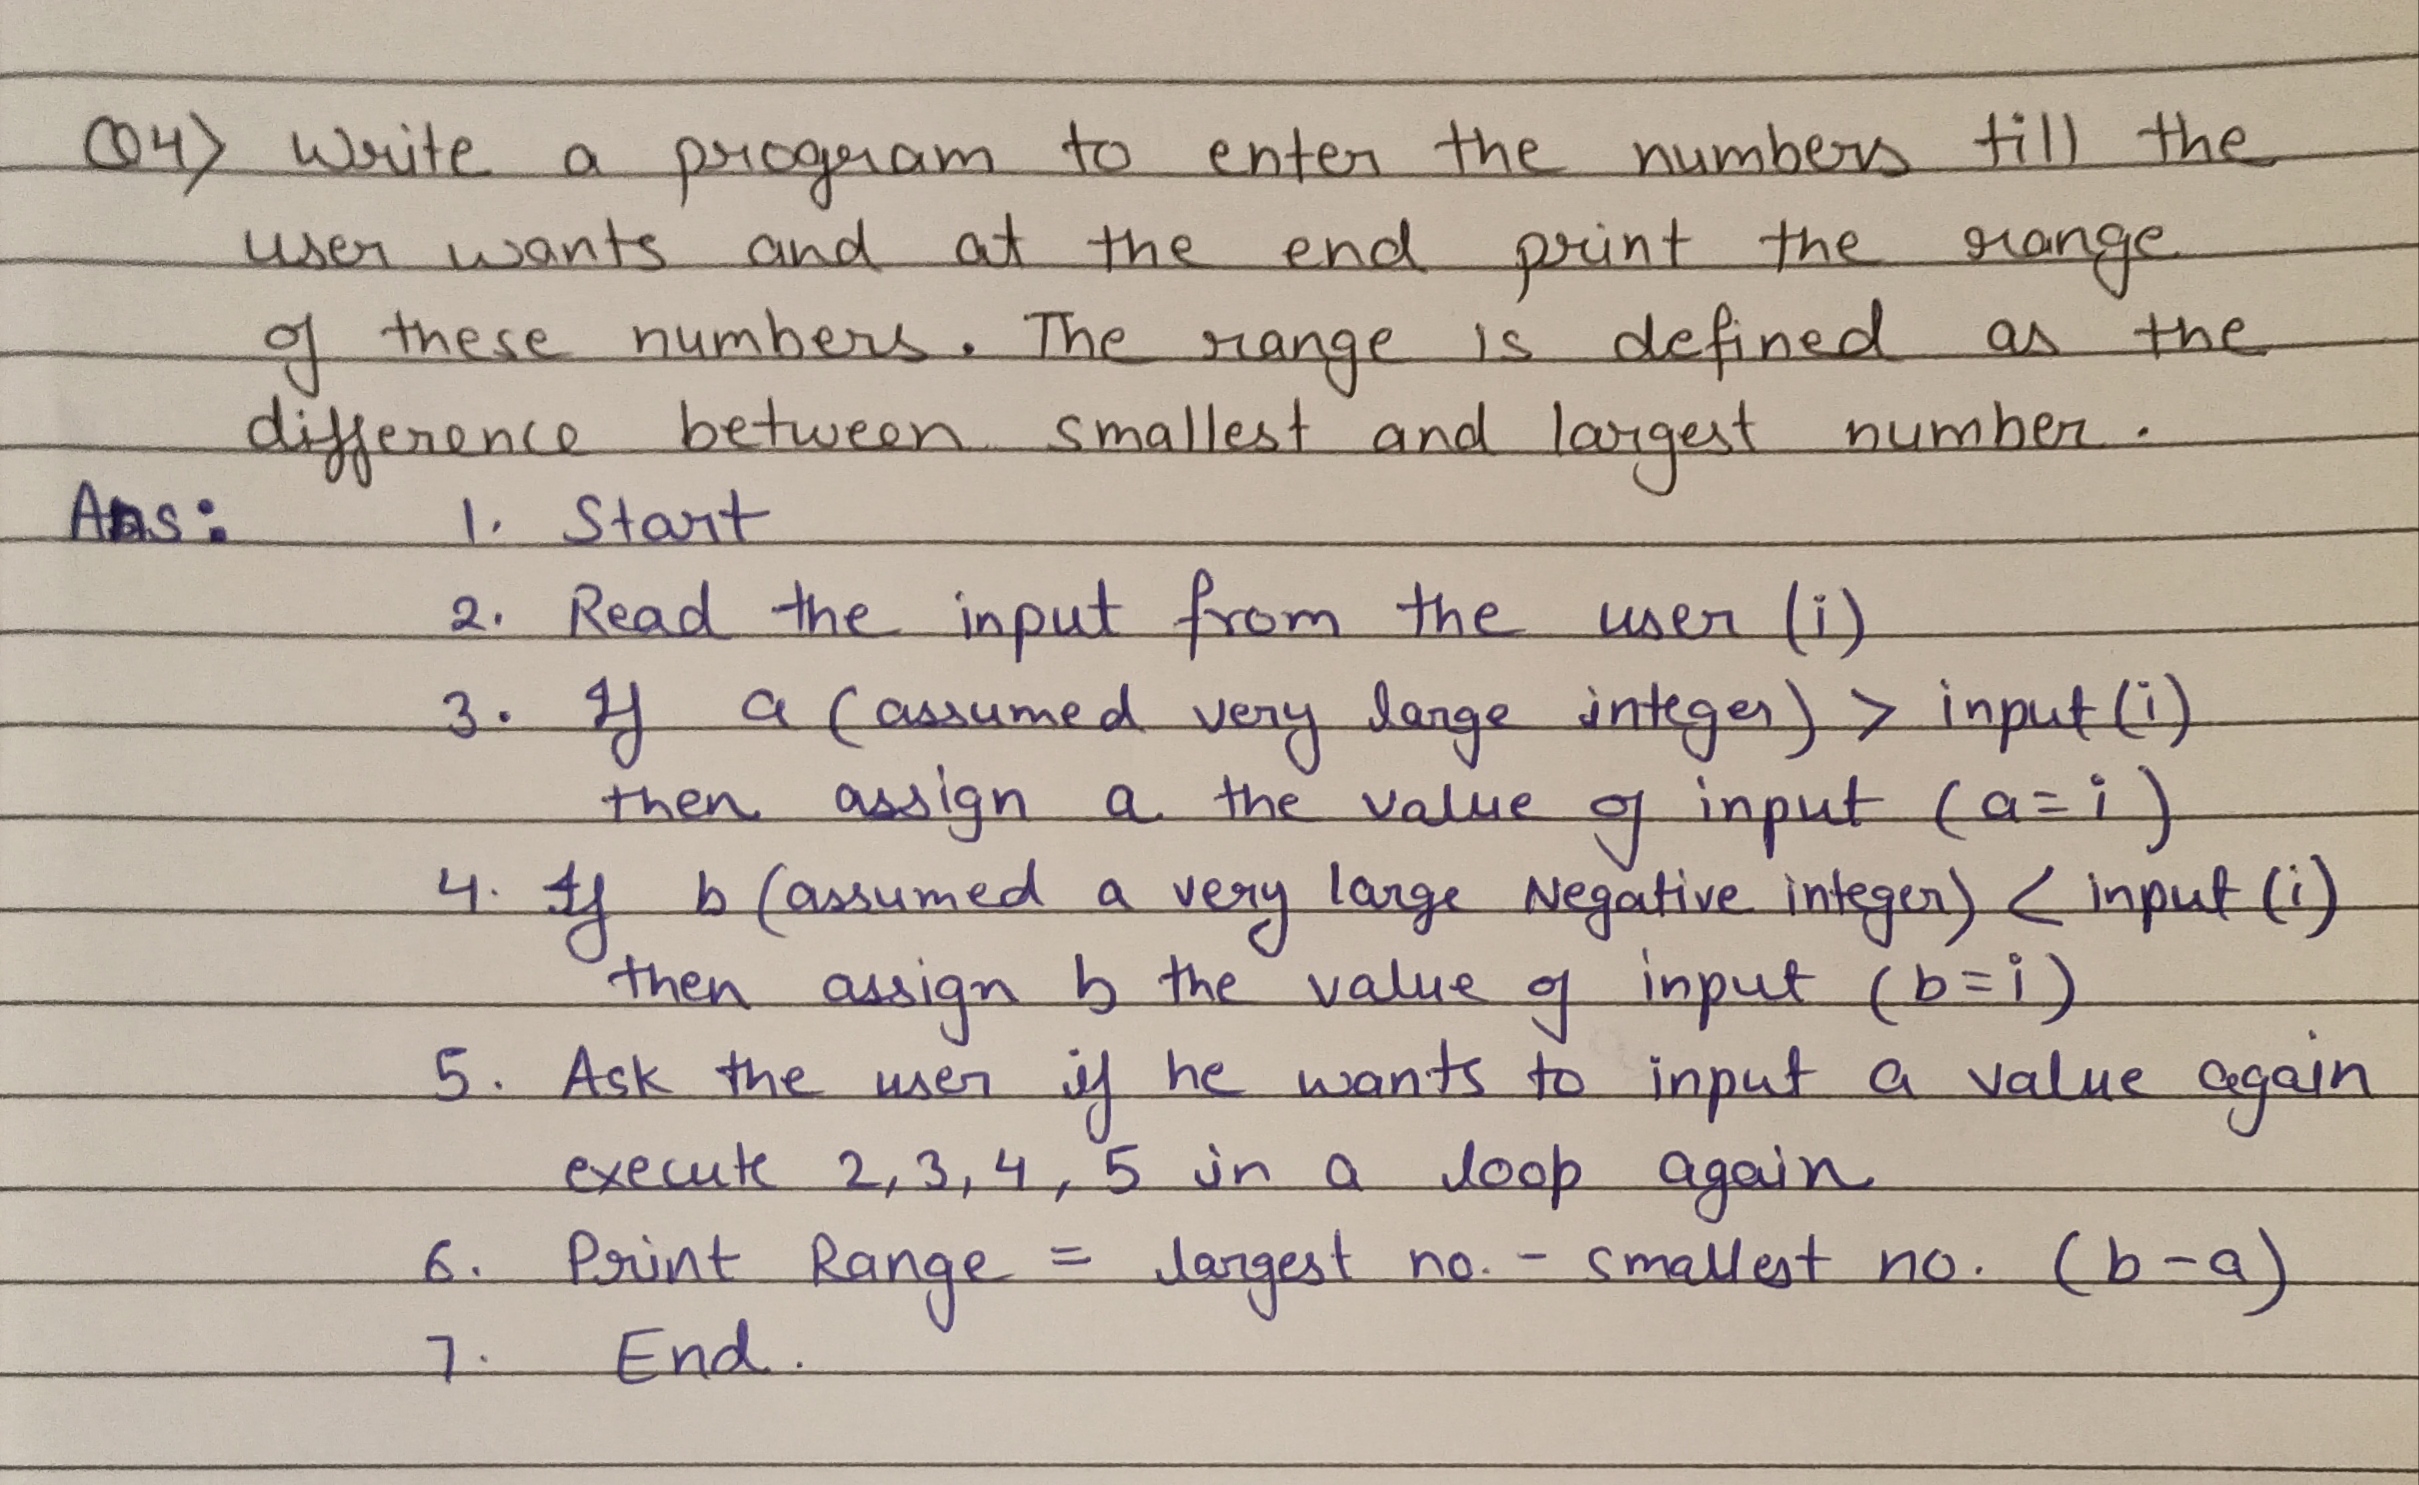 Q4) Write a program to enter the numbers till the
user wants and at the end print the range
of these numbers. The range is defined as the
difference between smallest and largest number.
Ans: 1. Start
2. Read the input from the user (i)
3. If a (assumed very large integer) > input (i)
then assign a the value of input (a=i)
4. If b (assumed a very large Negative integer) < input (i)
then assign b the value of input (b=i)
5. Ask the user if he wants to input a value again
execute 2,3,4,5 in a loop again
6. Print Range = largest no. - smallest no. (b-a)
7. End.